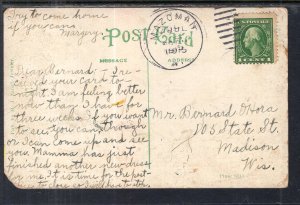 Try to come home
if you can.
Margery.
Post Card
MAZOMANIE
1915
MESSAGE
ADDRESS
1 CENT 1
Dear Bernard - I re-
ceived your card to-
night I am feeling better
now than I have for
three weeks. If you want
to see you can though
or I can come up and see
you. Mamma has just
finished another new dress
for me. It is time for the post-
Mr. Bernard Hora
103 State St.
Madison
Wis.